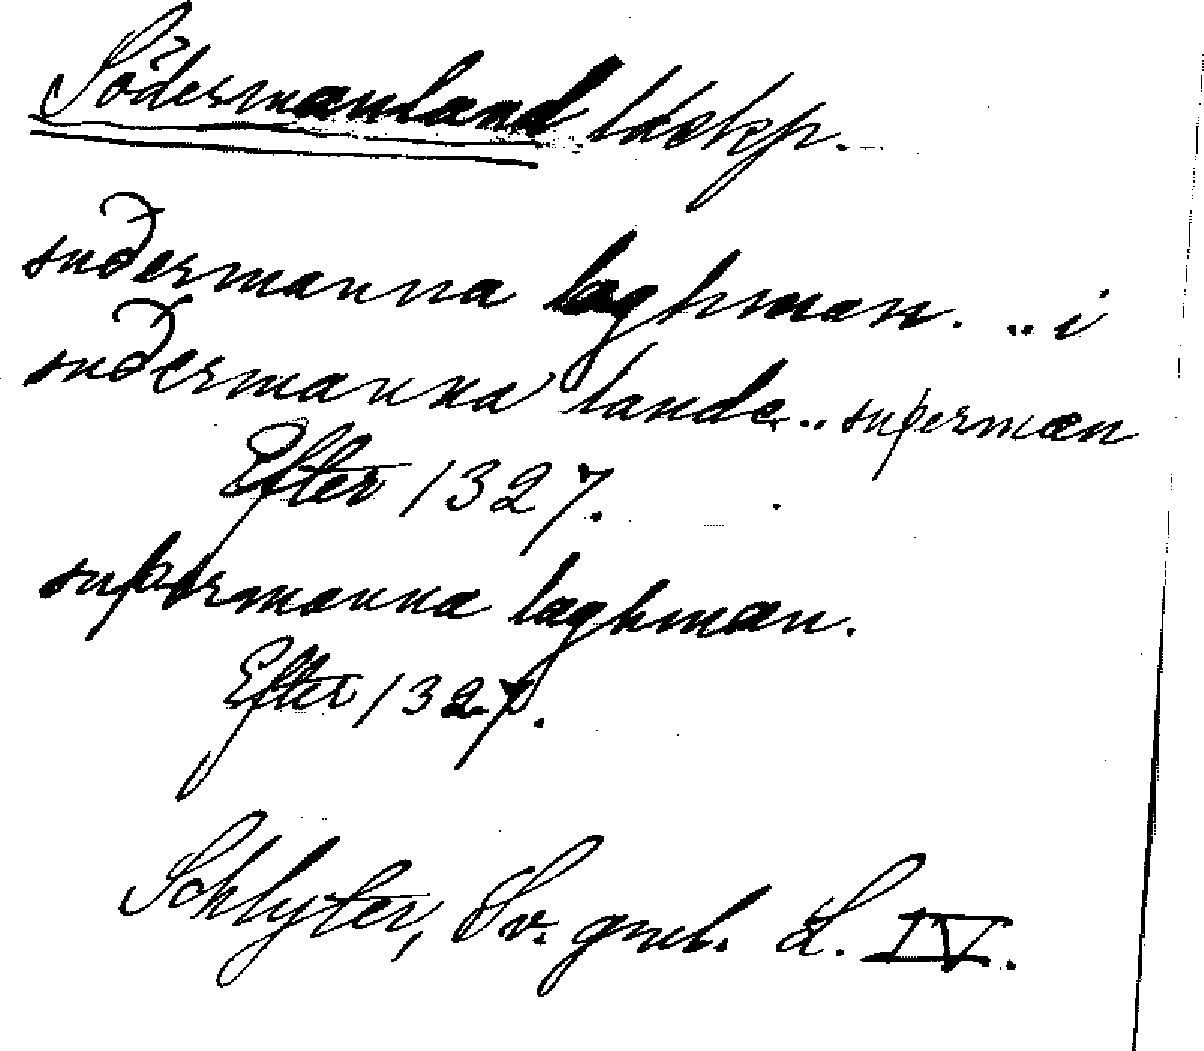 Södermanland ldskp.
suðermanna laghman. .. i
suðermanna lande .. suþermæn
Efter 1327.
suþermanna laghmæn.
Efter 1327.
Schlyter, Sv. gml. L. IV.